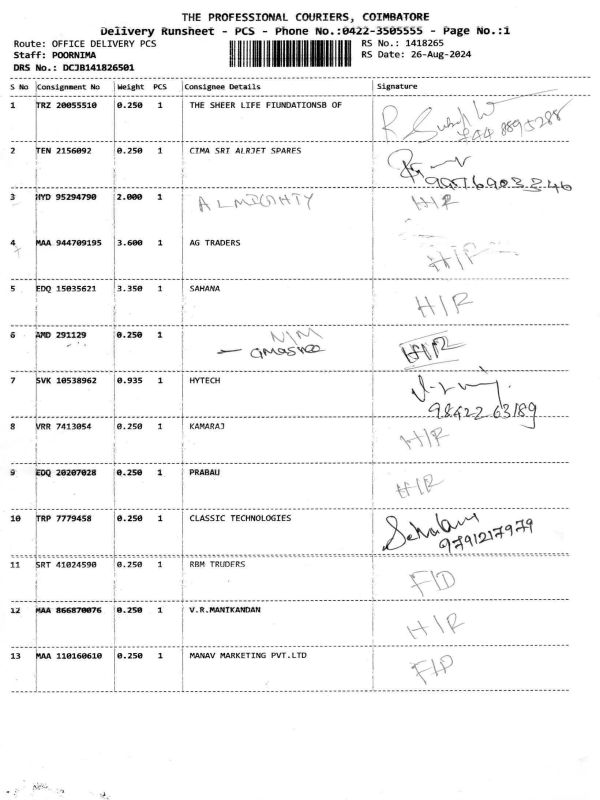 THE PROFESSIONAL COURIERS, COIMBATORE
Delivery Runsheet - PCS - Phone No.:0422-3505555 - Page No.:1
Route: OFFICE DELIVERY PCS RS No.: 1418265
Staff: POORNIMA RS Date: 26-Aug-2024
DRS No.: DCJB141826501
S No Consignment No Weight PCS Consignee Details Signature
1 TRZ 20055510 0.250 1 THE SHEER LIFE FIUNDATIONSB OF
2 TEN 2156092 0.250 1 CIMA SRI ALRJET SPARES
3 HYD 95294790 2.000 1 ALMIGHTY H/R
4 MAA 944709195 3.600 1 AG TRADERS H/R
5 EDQ 15035621 3.350 1 SAHANA H/R
6 AMD 291129 0.250 1 H/R
7 SVK 10538962 0.935 1 HYTECH
98422 63189
8 VRR 7413054 0.250 1 KAMARAJ H/R
9 EDQ 20207028 0.250 1 PRABAU H/R
10 TRP 7779458 0.250 1 CLASSIC TECHNOLOGIES
9791217979
11 SRT 41024590 0.250 1 RBM TRUDERS F/D
12 MAA 866870076 0.250 1 V.R.MANIKANDAN H/R
13 MAA 110160610 0.250 1 MANAV MARKETING PVT.LTD F/D